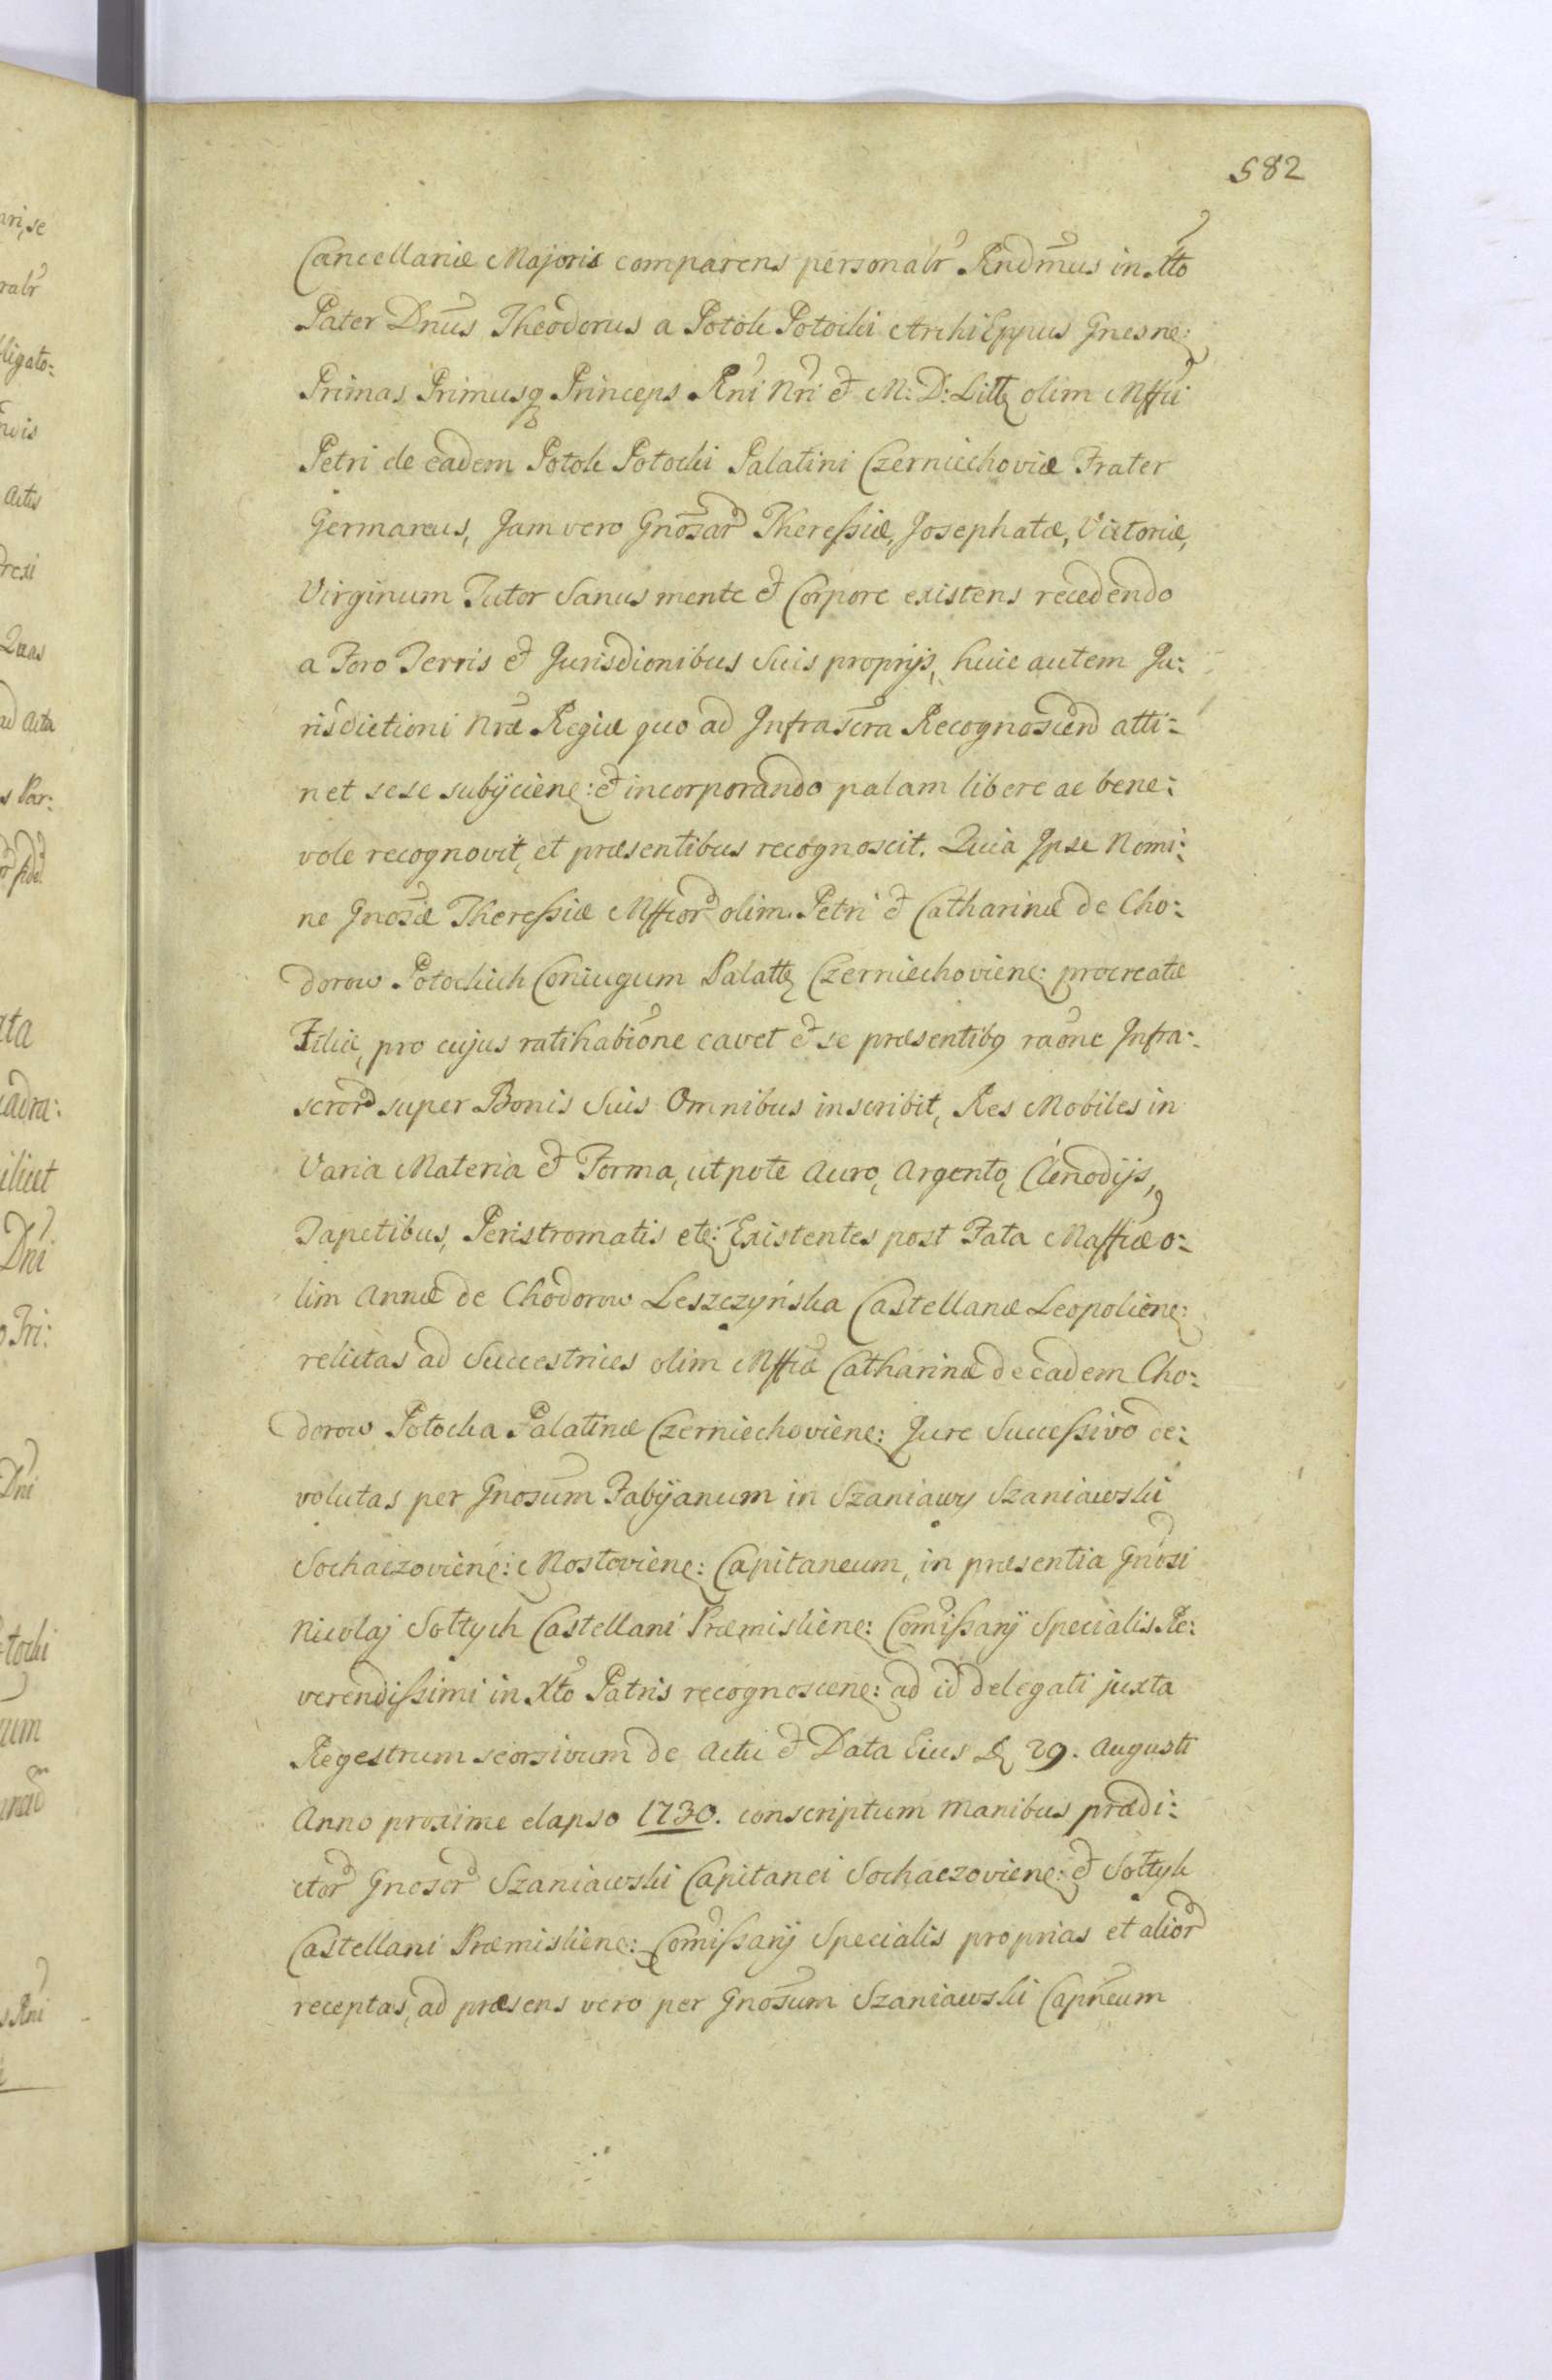 582
Cancellariæ Majoris comparens personalr Rndmus in Xtto
Pater Dnus Theodorus a Potok Potocki ArchiEppus Gnesne:
Primas Primusq Princeps Rni Nri et M: D: Litt olim Mffci
Petri de eadem Potok Potocki Palatini Czerniechoviæ Frater
Germanus, Jam vero Gnosar Theressiæ, Josephatæ, Victoriæ,
Virginum Tutor Sanus mente et Corpore existens recedendo
a Foro Terris et Jurisdionibus Suis proprijs, huic autem Ju:
risdictioni Nræ Regiæ quo ad Infrascra Recognoscend atti:
net sese subijciene: et incorporando palam libere ac bene:
vole recognovit, et præsentibus recognoscit. Quia Ipse Nomi:
ne Gnosæ Theressiæ Mffcor olim Petri et Catharinæ de Cho:
dorow Potockich Coniugum Palatt Czerniechoviene: procreatæ
Filiæ, pro cujus ratihabione cavet et se præsentibq raone Infra:
scror super Bonis Suis Omnibus inscribit, Res Mobiles in
Varia Materia et Forma, utpote Auro, Argento, Clenodijs,
Tapetibus, Peristromatis etc: Existentes post Fata Maffcæ o:
lim Annæ de Chodorow Leszczyńska Castellanæ Leopoliene:
relictas ad Succestrices olim Mffcæ Catharinæ de eadem Cho:
dorow Potocka Palatinæ Czerniechoviene: Jure Successivo de:
volutas per Gnosum Fabijanum in Szaniawy Szaniawski
Sochaczoviene: Mostoviene: Capitaneum, in præsentia Gnosi
Nicolaj Sołtych Castellani Præmisliene: Comissarij Specialis Re:
verendissimi in Xto Patris recognoscene: ad id delegati juxta
Regestrum seorsivum de Actu et Data Eius D 29. Augusti
Anno proxime elapso 1730. conscriptum manibus prædi:
ctor Gnosor Szaniawski Capitanei Sochaczoviene: et Sołtyk
Castellani Præmisliene: Comissarij Specialis proprias et alior
receptas, ad præsens vero per Gnosum Szaniawski Capneum